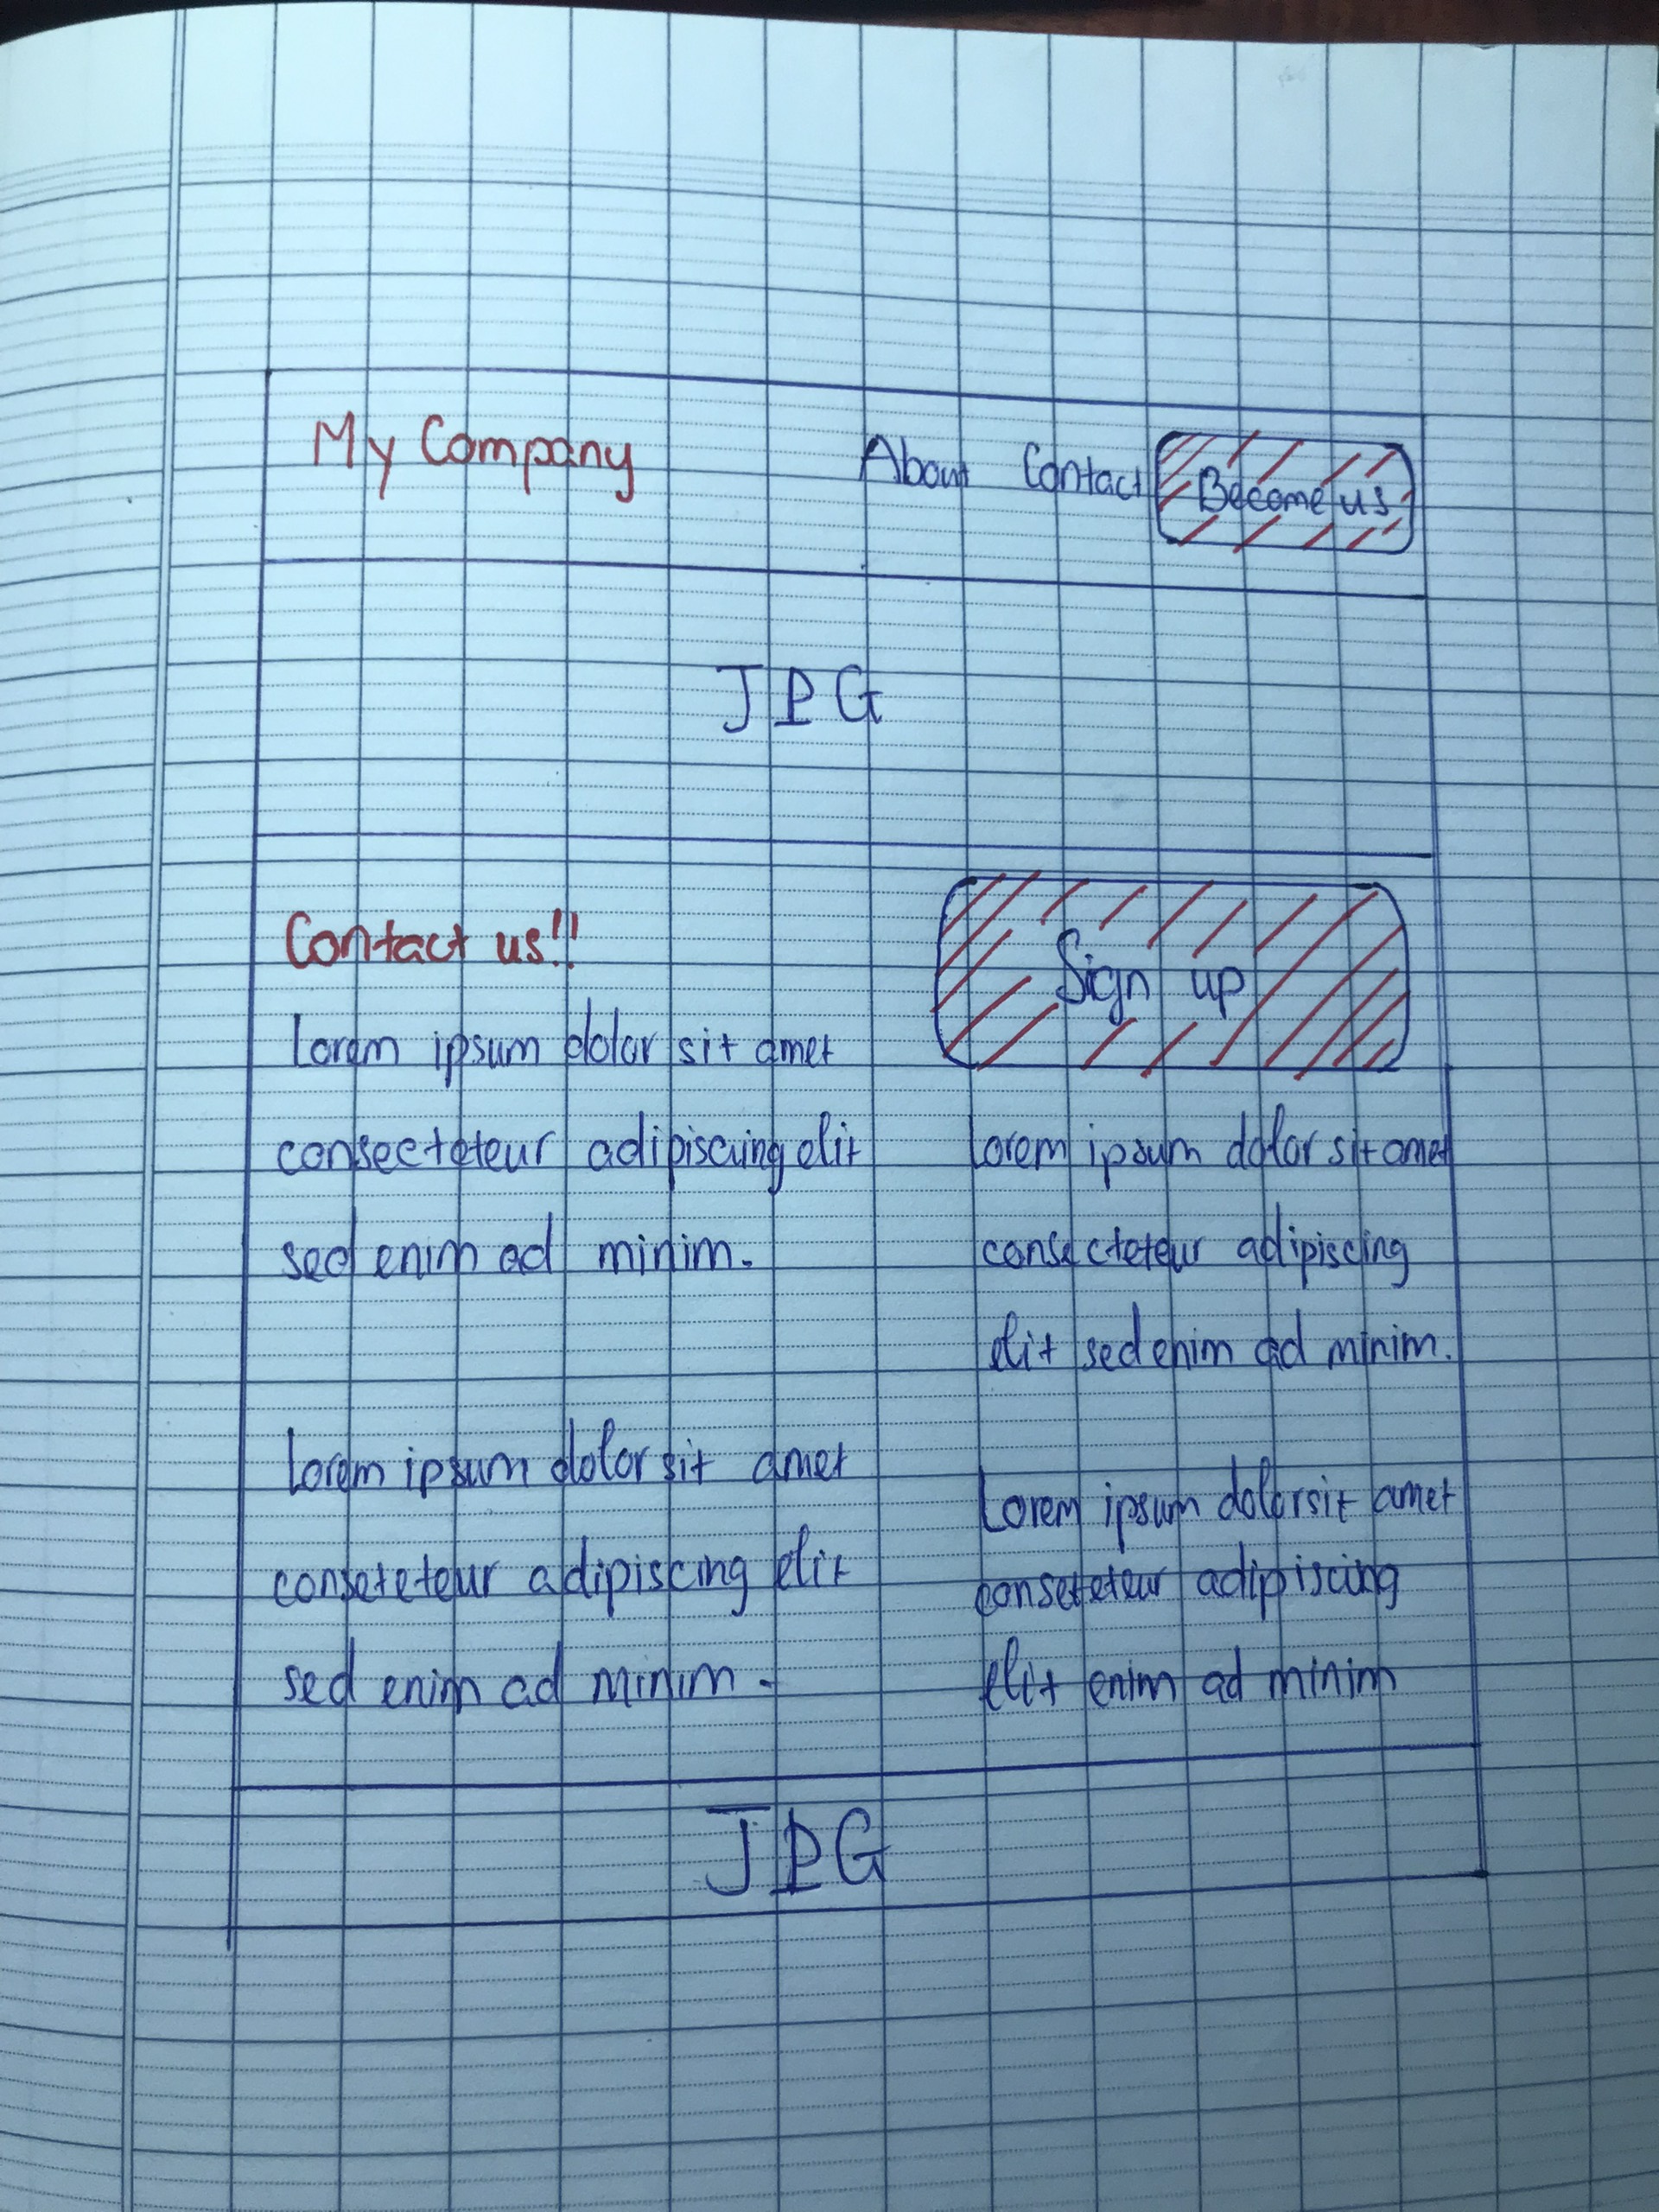 My Company About Contact Become us
JPG
Contact us!!
Lorem ipsum dolor sit amet
consecteteur adipiscing elit
sed enim ad minim.
Lorem ipsum dolor sit amet
conseteteur adipiscing elit
sed enim ad minim.
Sign up
Lorem ipsum dolor sit amet
consecteteur adipiscing
elit sed enim ad minim.
Lorem ipsum dolor sit amet
conseteteur adipiscing
elit enim ad minim
JPG